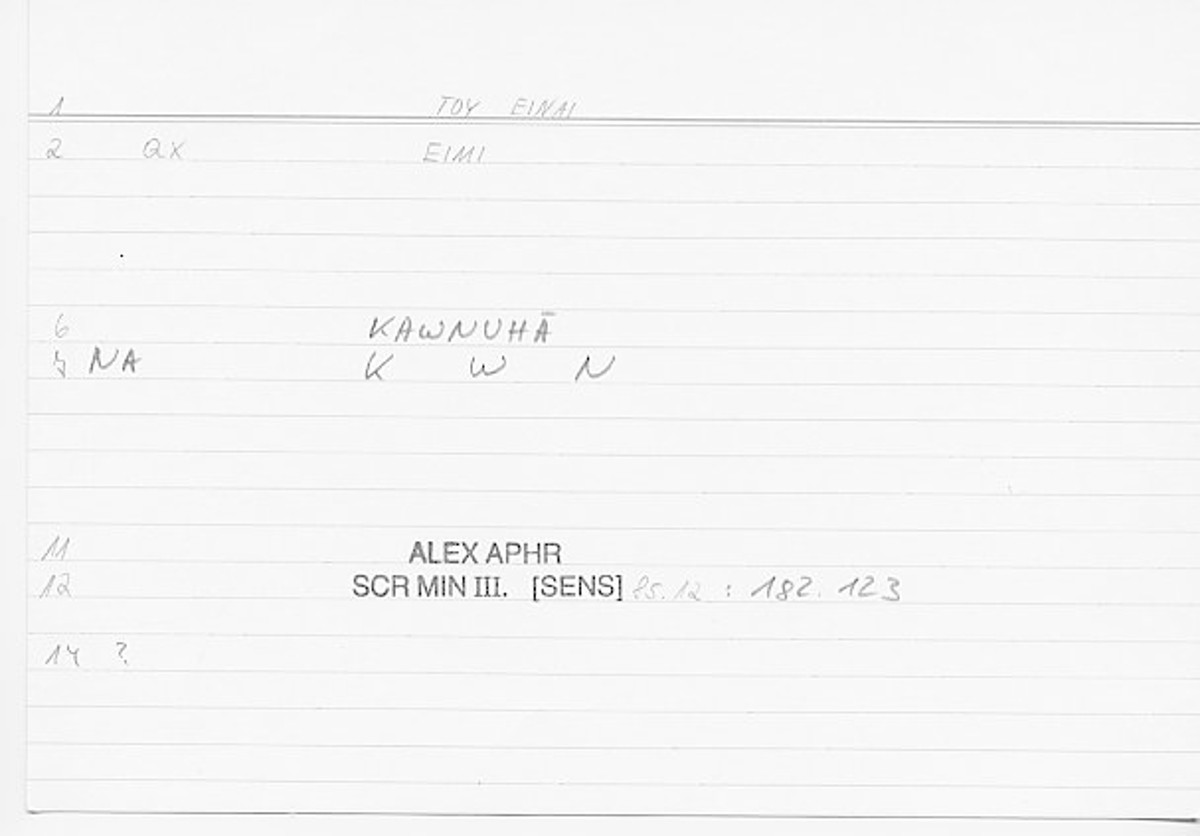 1 ΤΟΥ ΕΙΝΑΙ
2 QX ΕΙΜΙ
6 KAWNUHĀ
7 NA K W N
11 ALEX APHR
12 SCR MIN III. [SENS] 85.12 : 182.123
14 ?